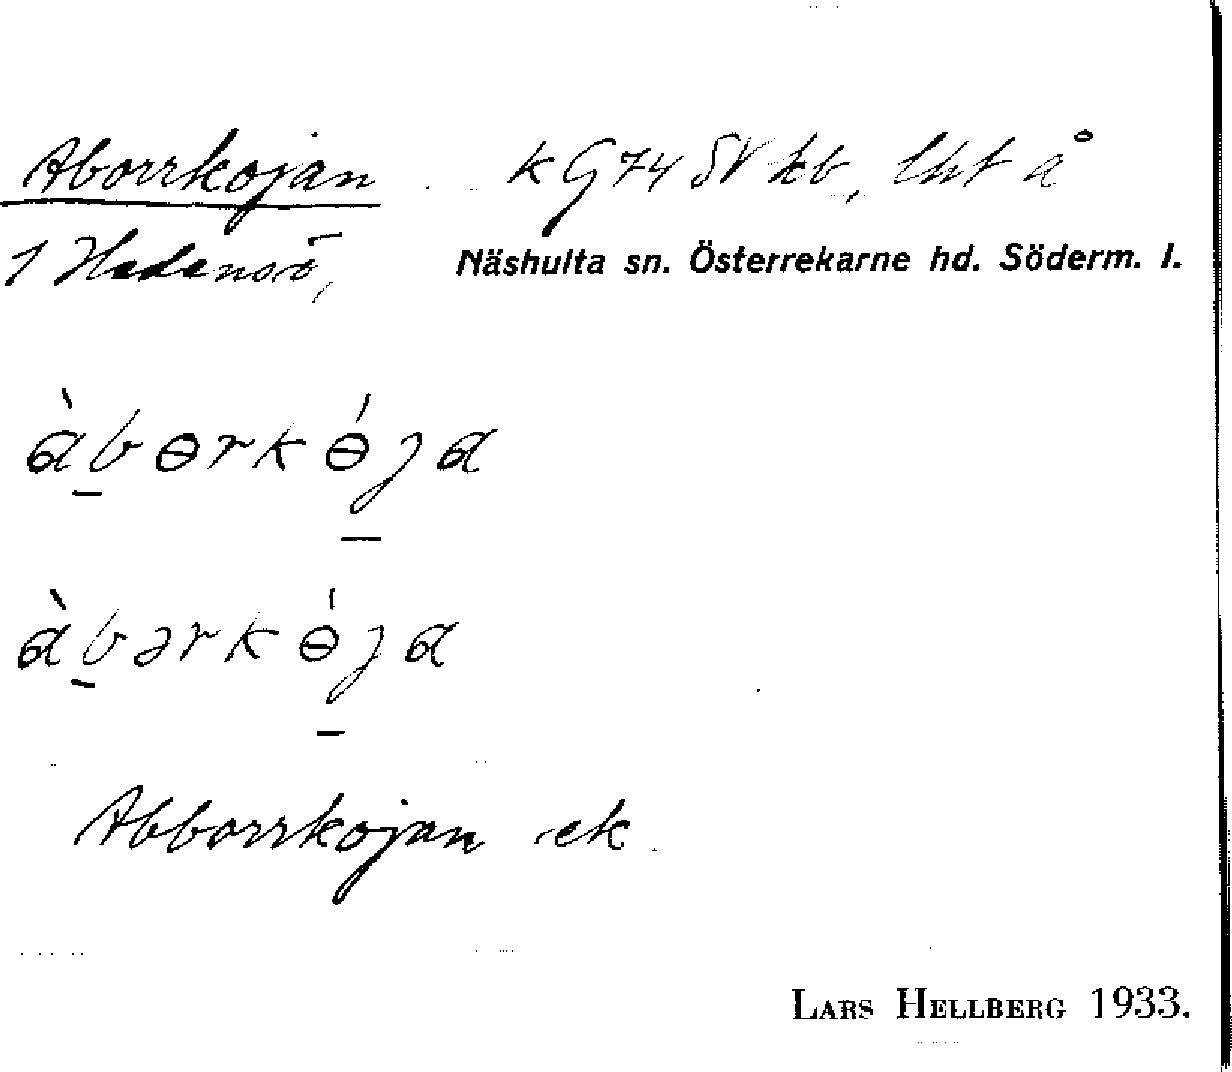 Aborrkojan kG74 SV kb, lht å
1 Hedensö, Näshulta sn. Österrekarne hd. Söderm. l.
àbɵrkɵ́ja
àbərkɵ́ja
Abborrkojan ek
LARS HELLBERG 1933.